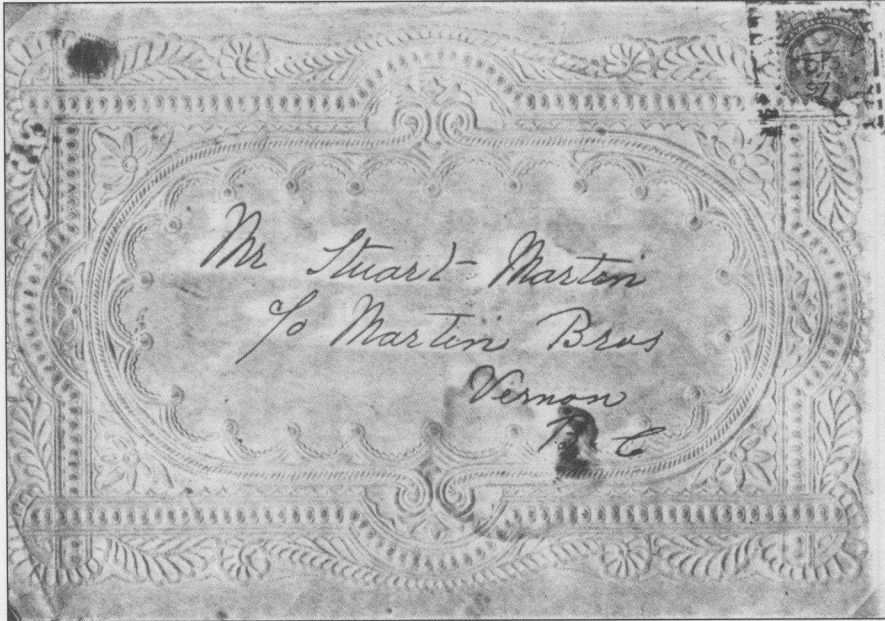 Mr Stuart Martin
c/o Martin Bros
Vernon
B C